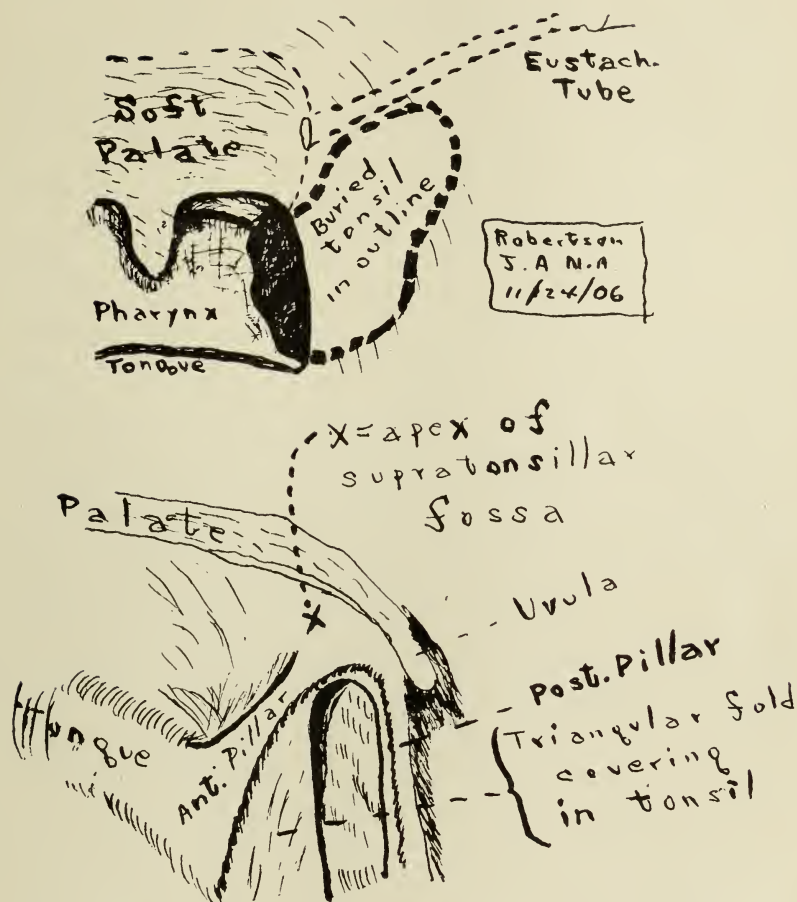 Eustach.
Tube
Soft
Palate
Buried
tonsil
in outline
Robertson
J. A M.A
11/24/06
Pharynx
Tongue
X=apex of
supratonsillar
fossa
Palate
X
Uvula
Post. Pillar
Tongue
Ant. Pillar
Triangular fold
covering
in tonsil